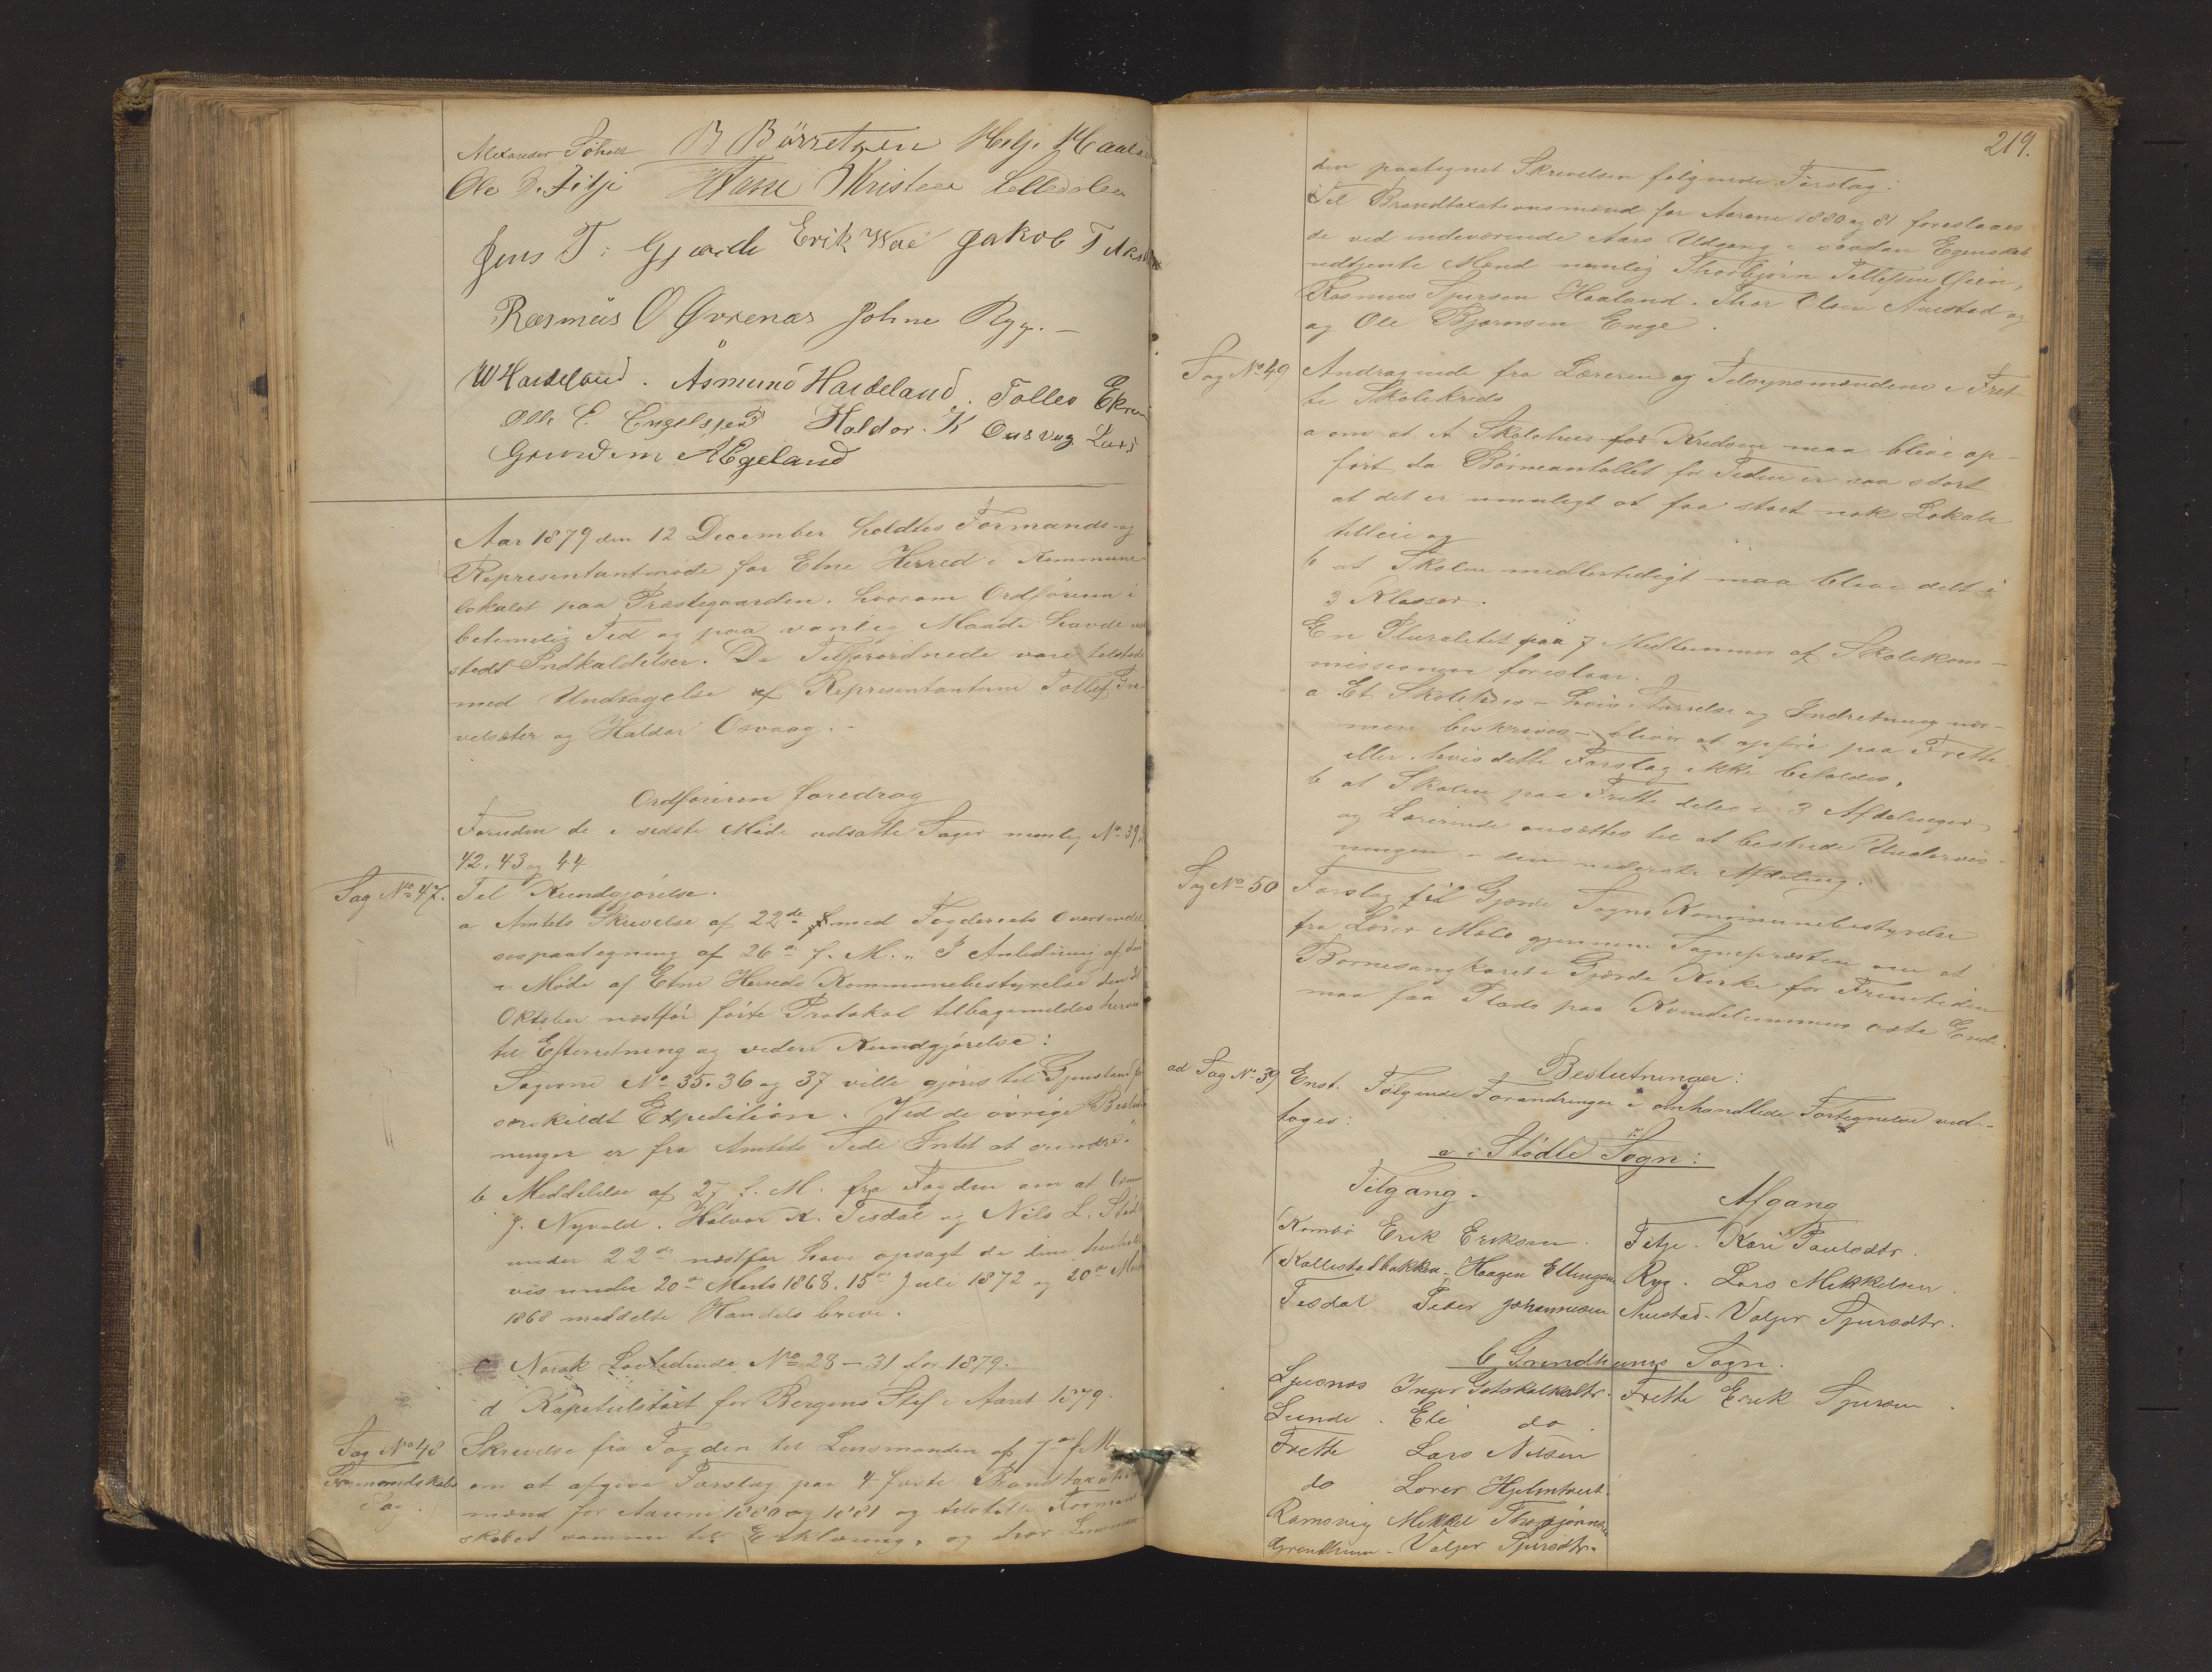 Alexander B Börretzen Helge Haaland
Ole Fitje Hans Kristen
Jens T. Gjærde Erik Wae Jakob T
Rasmus O Øvrenæs Johne Ryg. -
W Hardeland. Åsmund Hardeland. Tollev
Olle E. Engelsgjerd Haldor. K Ousvag Lars
Grindem AEgeland
Aar 1879 den 12 December holdtes Formands- og
Representantmøde for Etne Herred i Kommune-
lokalet paa Præstegaarden, hvorom Ordføreren i
betimelig Tid og paa vanlig Maade havde ud
stedt Indkaldelser. De Tilforordnede vare tilstede
med Undtagelse af Representanterne Tollef
velsæter og Haldor Osvaag. -
Ordføreren foredrog
Foruden de i sidste Møde udsatte Sager nemlig No 39,
42, 43 og 44
Sag No 47. Til Kundgjørelse.
a Amtets Skrivelse af 22de med Fogderiets Oversendel
sespaategning af 26de f. M. "I Anledning af den
i Møde af Etne Herreds Kommunebestyrelse den
Oktober næstfør førte Protokol tilbagemeldes herved
til Efterretning og videre Kundgjørelse:
Sagerne No 35. 36 og 37 ville gjøres til Gjenstand for
særskildt Expedition. Ved de øvrige Beslut
ninger er fra Amtets Side Intet at erindre."
b Meddelelse af 27 f. M. fra Fogden om at
J. Nyvold. Halvor K. Tesdal og Nils L. Stødl
under 22de næstfør have opsagt de dem henholds
vis under 20de Marts 1868. 15de Juli 1872 og 20de Marts
1868 meddelte Handelsbreve.
c Norsk Lovtidende No 28 - 31 for 1879.
d Kapitelstaxt for Bergens Stift i Aaret 1879.
Sag No 48 Skrivelse fra Fogden til Lensmanden af 7de f. M.
Formandskabs om at afgive Forslag paa 4 faste Brandtaxations
Sag. mænd for Aarene 1880 og 1881 og tilstille Formand
skabet samme til Erklæring, og har Lensman
219.
den paategnet Skrivelsen følgende Forslag:
"Til Brandtaxationsmænd for Aarene 1880 og 81 foreslaaes
de ved indeværende Aars Udgang i saadan Egenskab
udtjente Mænd nemlig Thorbjørn Tollefsen Øien,
Rasmus Sjursen Haaland. Thor Olsen Austad og
og Ole Bjørnsen Enge.
Sag No 49 Andragende fra Læreren og Tilsynsmændene i Fret
te Skolekreds
a om at et Skolehus for Kredsen maa blive op-
ført da Børneantallet for Tiden er saa stort
at det er umuligt at faa stort nok Lokale
tilleie og
b at Skolen midlertidigt maa blive delt i
3 Klasser.
En Pluralitet paa 7 Medlemmer af Skolekom-
missionen foreslaar.
a Et Skolehus - hvis Størrelse og Indretning nær-
mere beskrives - bliver at opføre paa Frette
eller, hvis dette Forslag ikke befaldes,
b at Skolen paa Frette deles i 3 Afdelinger
og Lærerinde ansættes til at bestride Undervis-
ningen i den nederste Afdeling.
Sag No 50 Forslag til Gjærde Sogns Kommunebestyrelse
fra Lærer Molo gjennem Sognepræsten om at
Børnesangkoret i Gjærde Kirke for Fremtiden
maa faa Plads paa Kvindelemmens østre Ende.
Beslutninger:
ad Sag No 39 Enst. Følgende Forandringer i omhandlede Fortegnelse ved-
toges:
a i Stødle Sogn:
Tilgang. Afgang
Kambo Erik Eriksen. Fitje - Kari Paulsdtr.
Kallestadbakken - Haagen Ellingsen Ryg. Lars Mikkelsen.
Tesdal Peder Johannesen Austad - Valger Sjursdtr.
b Grindheims Sogn.
Ljusnæs Inger Gotskalksdtr. Frette Erik Sjursen.
Lunde. Eli do
Frette Lars Nilsen
do Lærer Hjelmtveit.
Ramsvig Mikkel Thorbjørnsen
Grindheim - Valger Sjursdtr.